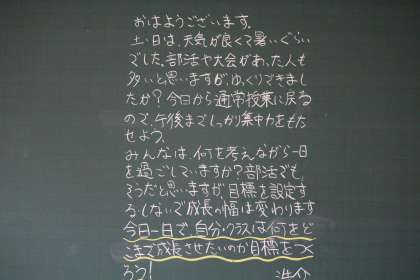 おはようございます。
土・日は、天気が良くて暑いぐらい
でした。部活や大会があった人も
多いと思いますが、ゆっくりできまし
たか？今日から通常授業に戻る
ので、午後までしっかり集中力をもた
せよう。
みんなは、何を考えながら一日
を過ごしていますか？部活でも
そうだと思いますが、目標を設定す
る・しないで成長の幅は変わります
今日一日で、自分・クラスは何をど
こまで成長させたいのか目標をつく
ろう！